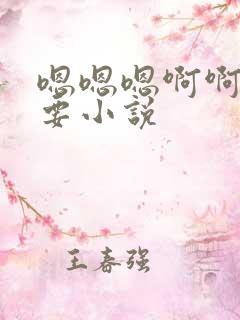 嗯嗯嗯啊啊
要小说
王春强